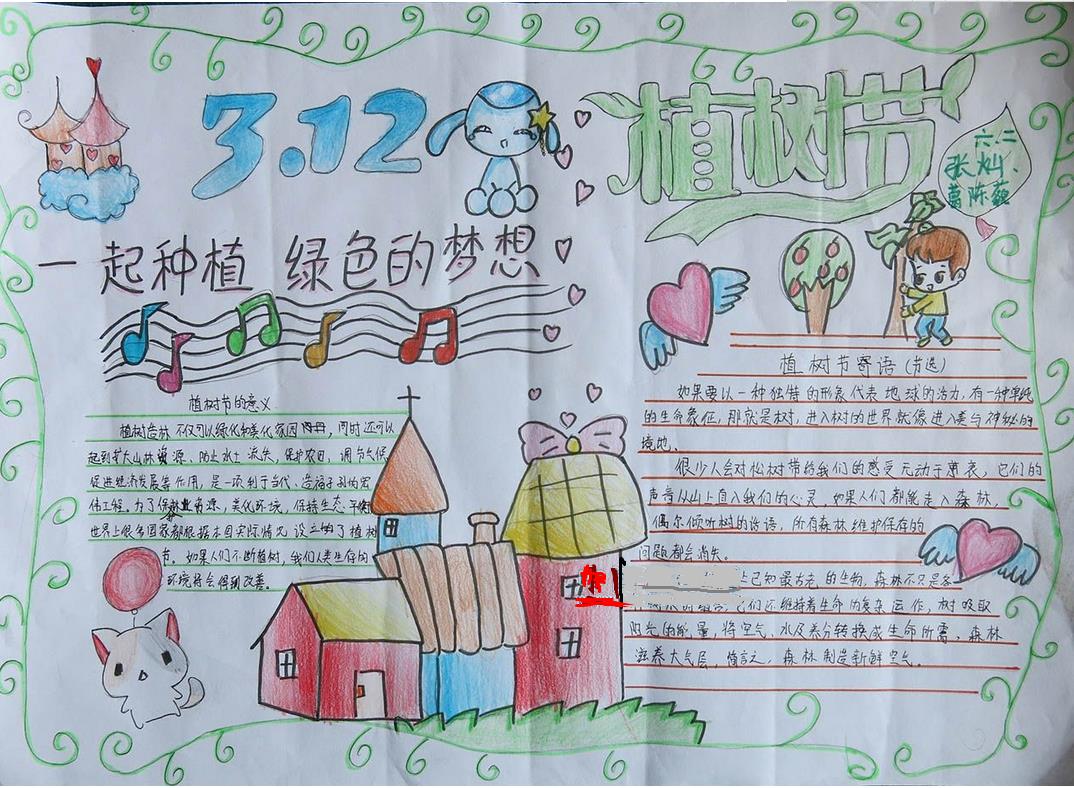 3.12
植树节
六.二
张灿、
葛陈薇
一起种植 绿色的梦想
植树节的意义
植树造林不仅可以绿化和美化家园,同时还可以
起到扩大山林资源、防止水土流失,保护农田,调节气候
促进经济发展等作用,是一项利于当代、造福子孙的宏
伟工程,为了保护林业资源,美化环境,保持生态平衡
世界上很多国家都根据本国实际情况设立了植树
节。如果人们不断植树,我们人类生存的
环境将会得到改善。
植树节寄语(节选)
如果要以一种独特的形象代表地球的活力,有一种单纯
的生命象征,那就是树,进入树的世界就像进入美与神秘的
境地。
很少人会对松树带给我们的感受无动于衷,它们的
声音从山上直入我们的心灵,如果人们都能走入森林,
偶尔倾听树的话语,所有森林维护保存的
问题都会消失。
已知最古老的生物,森林不只是各
它们还维持着生命的复杂运作,树吸取
阳光的能量,将空气、水及养分转换成生命所需,森林
滋养大气层,简言之,森林制造新鲜空气。